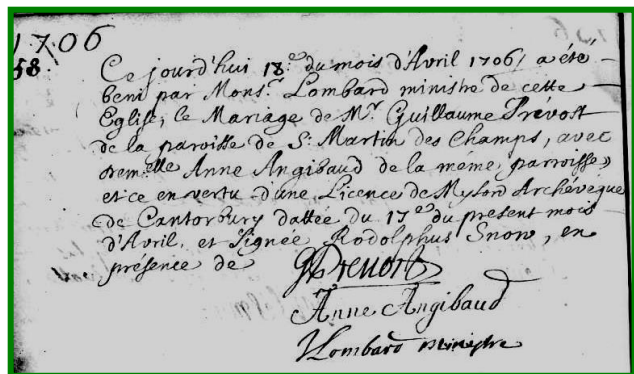 1706
58.
Ce jourd'hui 18.e du mois d'Avril 1706 / a été
beni par Mons.r Lombard ministre de cette
Eglise, le Mariage de M.r Guillaume Prévost
de la paroisse de S.t Martin des Champs, avec
dem.elle Anne Angibaud de la même parroisse,
et ce en vertu d'une Licence de Mylord Archevêque
de Cantorbury dattée du 17.e du present mois
d'Avril, et signée Rodolphus Snow, en
présence de GPrevost
Anne Angibaud
Lombard ministre